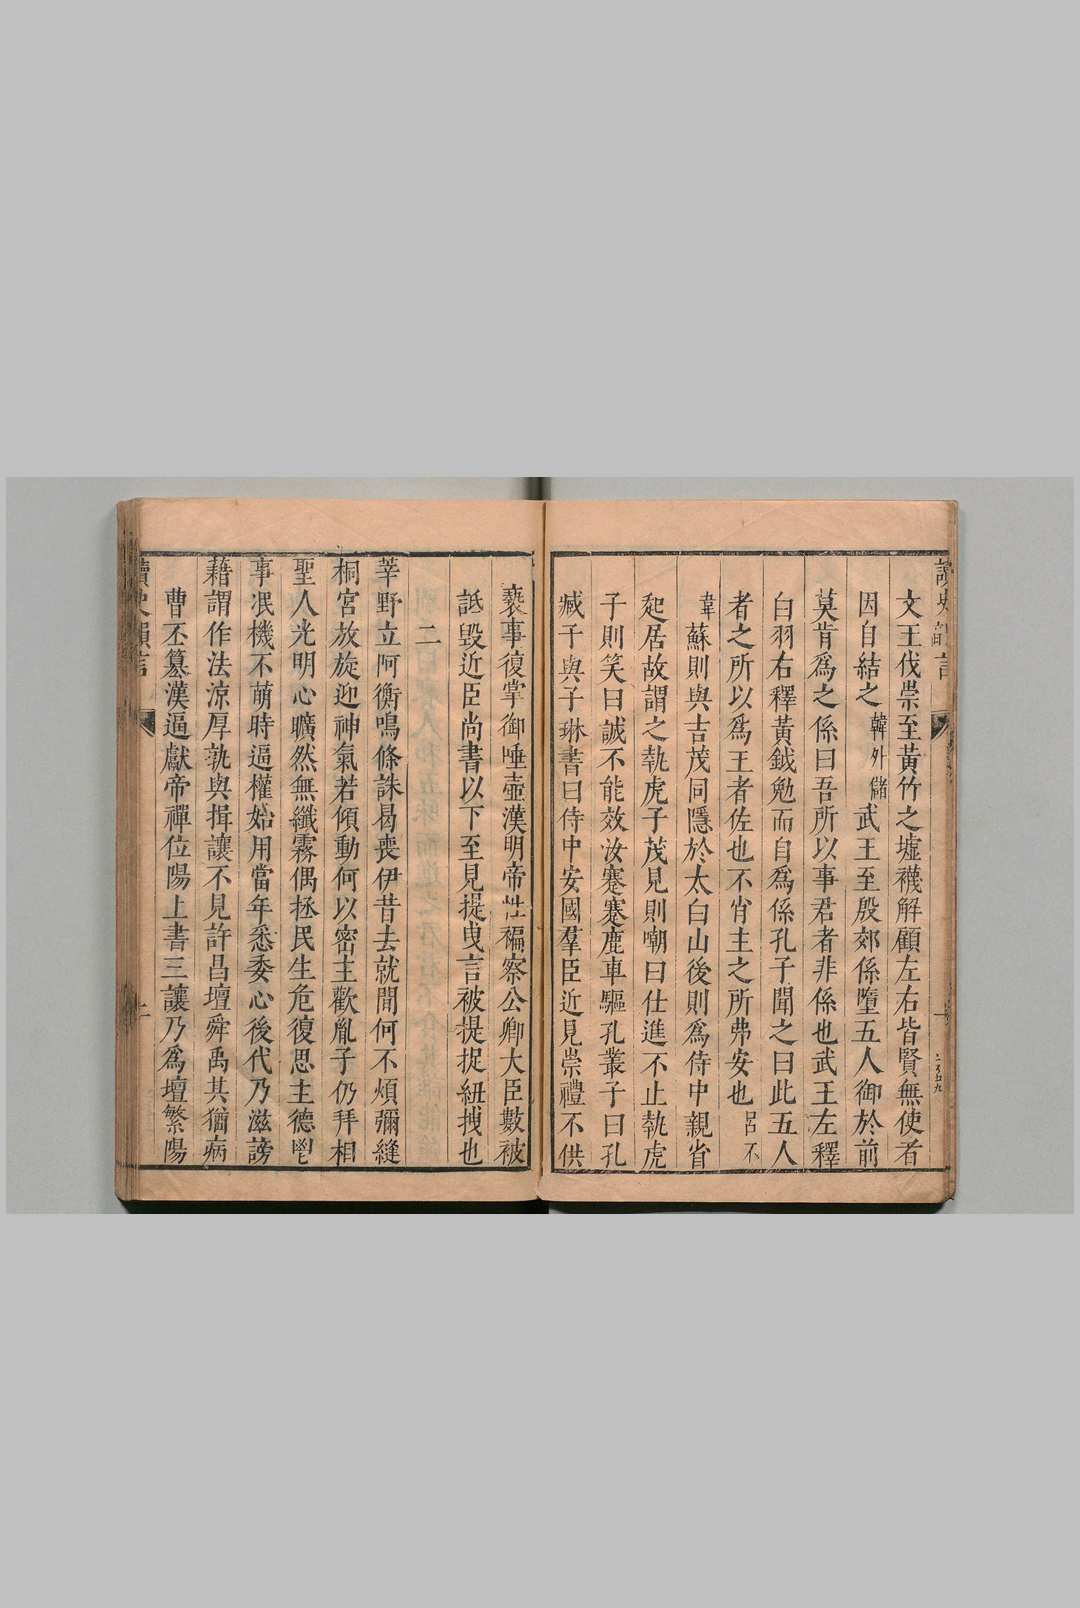 文王伐崇至黃竹之墟襪解顧左右皆賢無使者
因自結之韓外儲武王至殷郊係墮五人御於前
莫肯爲之係曰吾所以事君者非係也武王左釋
白羽右釋黃鉞勉而自爲係孔子聞之曰此五人
者之所以爲王者佐也不肖主之所弗安也呂不
韋蘇則與吉茂同隱於太白山後則爲侍中親省
起居故謂之執虎子茂見則嘲曰仕進不止執虎
子則笑曰誠不能效汝蹇蹇鹿車驅孔叢子曰孔
臧子與子琳書曰侍中安國羣臣近見崇禮不供
褻事復掌御唾壺漢明帝性褊察公卿大臣數被
詆毀近臣尚書以下至見提曳言被提捉紐拽也
二
莘野立阿衡鳴條誅曷喪伊昔去就間何不煩彌縫
桐宮放旋迎神氣若傾動何以密主歡胤子仍拜相
聖人光明心曠然無纖霧偶拯民生危復思主德鬯
事泯機不萌時逼權始用當年悉委心後代乃滋謗
藉謂作法涼厚孰與揖讓不見許昌壇舜禹其猶病
曹丕篡漢逼獻帝禪位陽上書三讓乃爲壇繁陽
讀史韻言